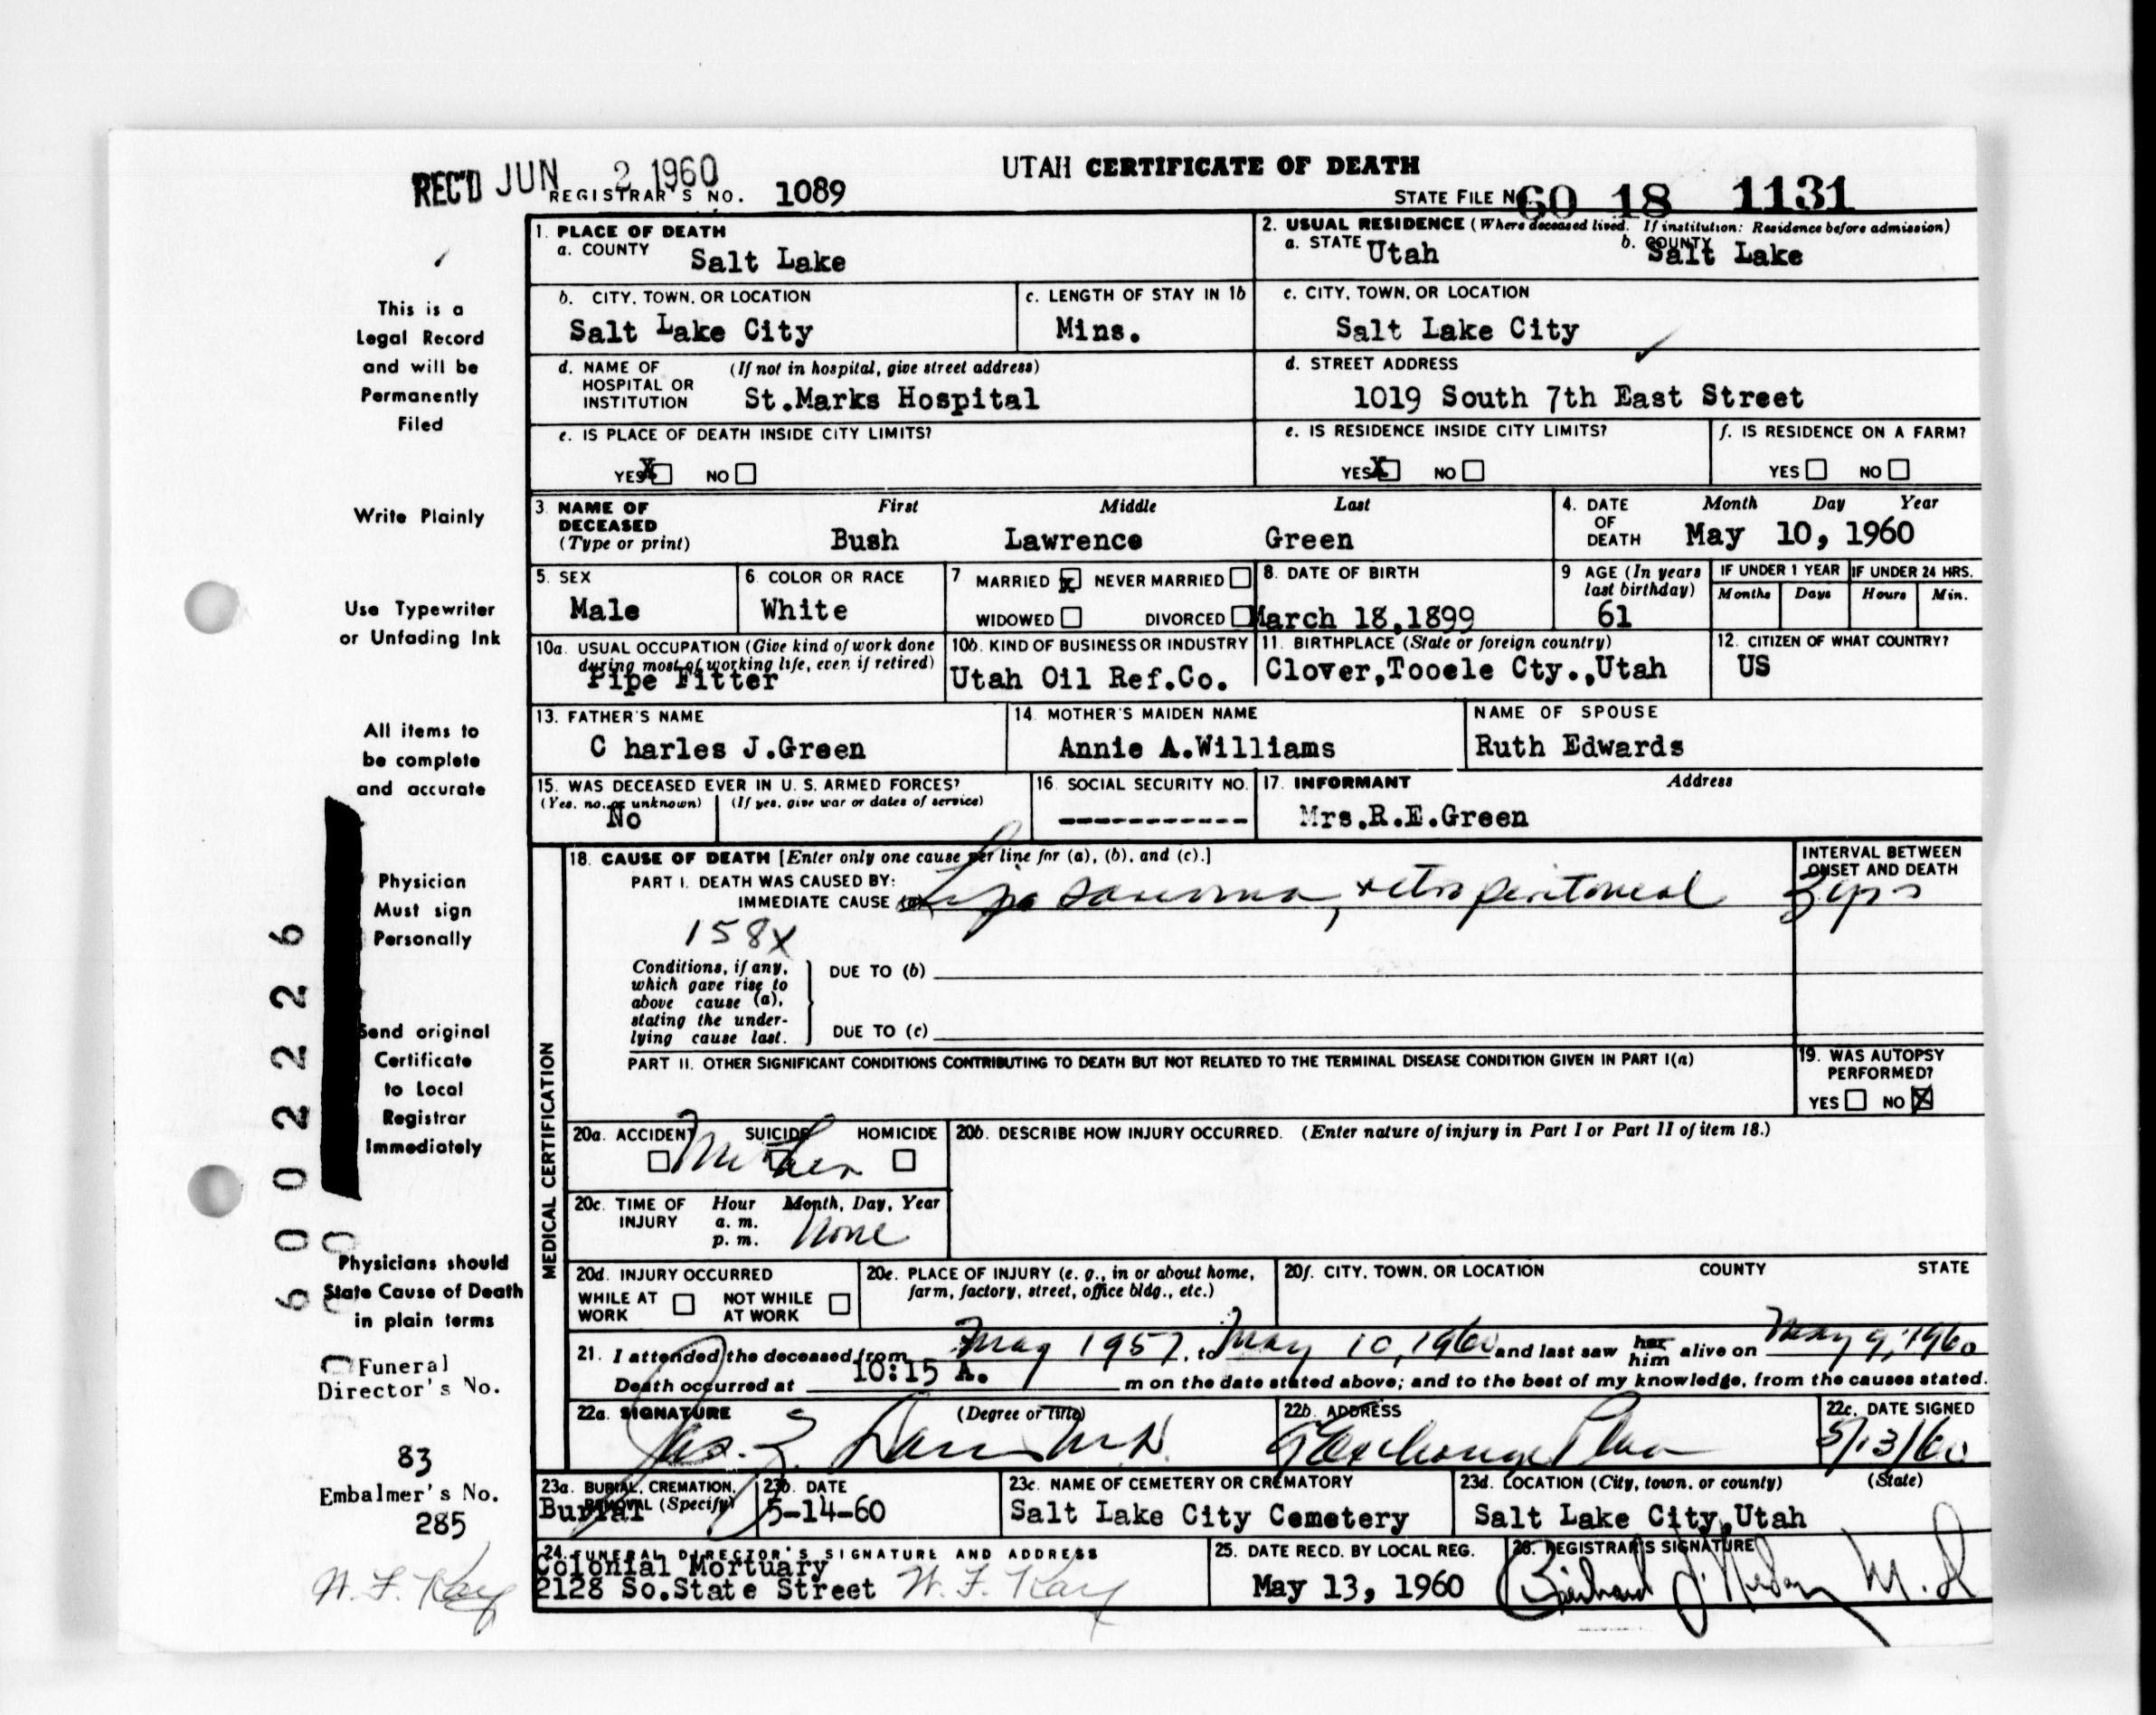 REC'D JUN 2 1960
UTAH CERTIFICATE OF DEATH
REGISTRAR'S NO. 1089
STATE FILE NO. 60 18 1131
1. PLACE OF DEATH
a. COUNTY Salt Lake
2. USUAL RESIDENCE (Where deceased lived. If institution: Residence before admission)
a. STATE Utah b. COUNTY Salt Lake
b. CITY, TOWN, OR LOCATION
Salt Lake City
c. LENGTH OF STAY IN 1b
Mins.
c. CITY, TOWN, OR LOCATION
Salt Lake City
d. NAME OF HOSPITAL OR INSTITUTION (If not in hospital, give street address)
St.Marks Hospital
d. STREET ADDRESS
1019 South 7th East Street
e. IS PLACE OF DEATH INSIDE CITY LIMITS?
YES X NO
e. IS RESIDENCE INSIDE CITY LIMITS?
YES X NO
f. IS RESIDENCE ON A FARM?
YES NO
3. NAME OF DECEASED (Type or print)
First Middle Last
Bush Lawrence Green
4. DATE OF DEATH Month Day Year
May 10, 1960
5. SEX
Male
6. COLOR OR RACE
White
7 MARRIED X NEVER MARRIED
WIDOWED DIVORCED
8. DATE OF BIRTH
March 18,1899
9 AGE (In years last birthday)
61
IF UNDER 1 YEAR
Months Days
IF UNDER 24 HRS.
Hours Min.
10a. USUAL OCCUPATION (Give kind of work done
during most of working life, even if retired)
Pipe Fitter
10b. KIND OF BUSINESS OR INDUSTRY
Utah Oil Ref.Co.
11. BIRTHPLACE (State or foreign country)
Clover,Tooele Cty.,Utah
12. CITIZEN OF WHAT COUNTRY?
US
13. FATHER'S NAME
C harles J.Green
14. MOTHER'S MAIDEN NAME
Annie A.Williams
NAME OF SPOUSE
Ruth Edwards
15. WAS DECEASED EVER IN U. S. ARMED FORCES?
(Yes, no, or unknown) (If yes, give war or dates of service)
No
16. SOCIAL SECURITY NO.
-----------
17. INFORMANT Address
Mrs.R.E.Green
MEDICAL CERTIFICATION
18. CAUSE OF DEATH [Enter only one cause per line for (a), (b), and (c).]
PART I. DEATH WAS CAUSED BY:
IMMEDIATE CAUSE (a) Lipo sarcoma, retroperitoneal
INTERVAL BETWEEN
ONSET AND DEATH
3 yrs
158X
Conditions, if any,
which gave rise to
above cause (a),
stating the under-
lying cause last.
DUE TO (b)
DUE TO (c)
PART II. OTHER SIGNIFICANT CONDITIONS CONTRIBUTING TO DEATH BUT NOT RELATED TO THE TERMINAL DISEASE CONDITION GIVEN IN PART I(a)
19. WAS AUTOPSY
PERFORMED?
YES NO X
20a. ACCIDENT SUICIDE HOMICIDE
20b. DESCRIBE HOW INJURY OCCURRED. (Enter nature of injury in Part I or Part II of item 18.)
20c. TIME OF INJURY Hour Month, Day, Year
a. m.
p. m.
None
20d. INJURY OCCURRED
WHILE AT WORK NOT WHILE AT WORK
20e. PLACE OF INJURY (e. g., in or about home,
farm, factory, street, office bldg., etc.)
20f. CITY, TOWN, OR LOCATION COUNTY STATE
21. I attended the deceased from May 1957, to May 10, 1960 and last saw her him alive on May 9, 1960
Death occurred at 10:15 A. m on the date stated above; and to the best of my knowledge, from the causes stated.
22a. SIGNATURE (Degree or title)
M.D.
22b. ADDRESS
Exchange Place
22c. DATE SIGNED
5/13/60
23a. BURIAL, CREMATION,
REMOVAL (Specify)
Burial
23b. DATE
5-14-60
23c. NAME OF CEMETERY OR CREMATORY
Salt Lake City Cemetery
23d. LOCATION (City, town, or county) (State)
Salt Lake City,Utah
24. FUNERAL DIRECTOR'S SIGNATURE AND ADDRESS
Colonial Mortuary
2128 So.State Street W. F. Kay
25. DATE RECD. BY LOCAL REG.
May 13, 1960
26. REGISTRAR'S SIGNATURE
M.D
This is a
Legal Record
and will be
Permanently
Filed
Write Plainly
Use Typewriter
or Unfading Ink
All items to
be complete
and accurate
Physician
Must sign
Personally
Send original
Certificate
to Local
Registrar
Immediately
Physicians should
State Cause of Death
in plain terms
Funeral
Director's No.
83
Embalmer's No.
285
W. F. Kay
6002226